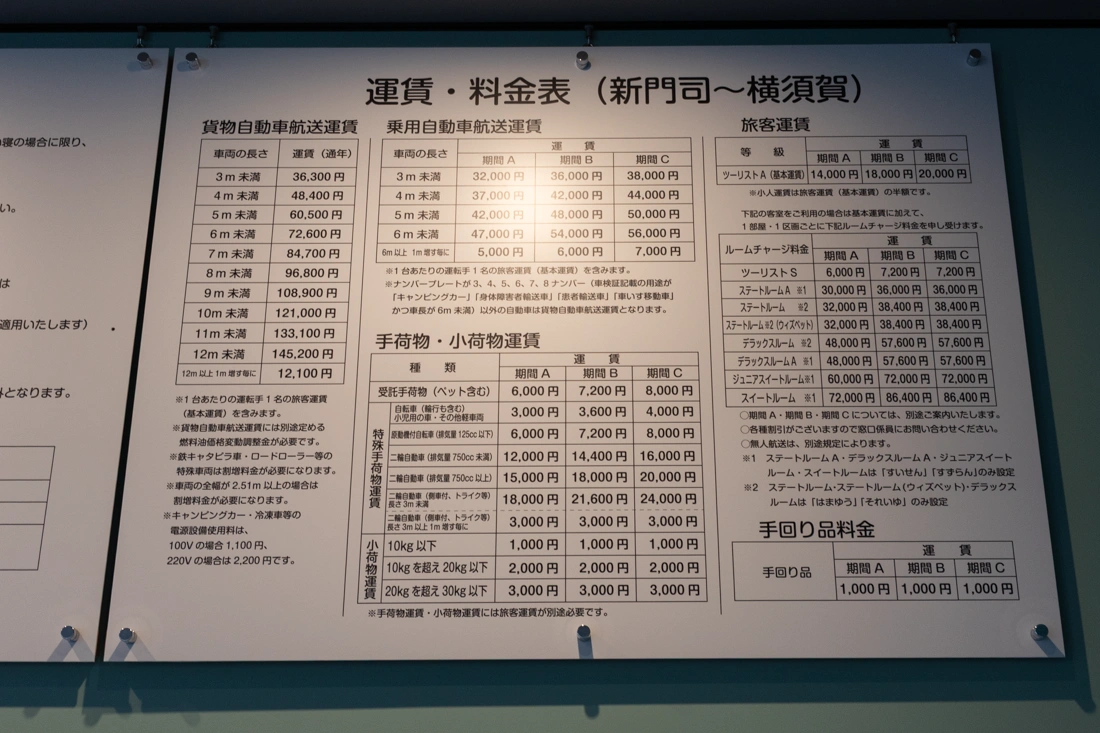 の寝の場合に限り、
い。
は
適用いたします）
外となります。
運賃・料金表（新門司～横須賀）
貨物自動車航送運賃
車両の長さ 運賃（通年）
3m未満 36,300円
4m未満 48,400円
5m未満 60,500円
6m未満 72,600円
7m未満 84,700円
8m未満 96,800円
9m未満 108,900円
10m未満 121,000円
11m未満 133,100円
12m未満 145,200円
12m以上1m増す毎に 12,100円
※1台あたりの運転手1名の旅客運賃
（基本運賃）を含みます。
※貨物自動車航送運賃には別途定める
燃料油価格変動調整金が必要です。
※鉄キャタピラ車・ロードローラー等の
特殊車両は割増料金が必要になります。
※車両の全幅が2.51m以上の場合は
割増料金が必要になります。
※キャンピングカー・冷凍車等の
電源設備使用料は、
100Vの場合1,100円、
220Vの場合は2,200円です。
乗用自動車航送運賃
車両の長さ 運賃
期間A 期間B 期間C
3m未満 32,000円 36,000円 38,000円
4m未満 37,000円 42,000円 44,000円
5m未満 42,000円 48,000円 50,000円
6m未満 47,000円 54,000円 56,000円
6m以上 1m増す毎に 5,000円 6,000円 7,000円
※1台あたりの運転手1名の旅客運賃（基本運賃）を含みます。
※ナンバープレートが3、4、5、6、7、8ナンバー（車検証記載の用途が
「キャンピングカー」「身体障害者輸送車」「患者輸送車」「車いす移動車」
かつ車長が6m未満）以外の自動車は貨物自動車航送運賃となります。
手荷物・小荷物運賃
種類 運賃
期間A 期間B 期間C
受託手荷物（ペット含む） 6,000円 7,200円 8,000円
特殊手荷物運賃
自転車（輪行も含む）
小児用の車・その他軽車両 3,000円 3,600円 4,000円
原動機付自転車（排気量125cc以下） 6,000円 7,200円 8,000円
二輪自動車（排気量750cc未満） 12,000円 14,400円 16,000円
二輪自動車（排気量750cc以上） 15,000円 18,000円 20,000円
二輪自動車（側車付、トライク等）
長さ3m未満 18,000円 21,600円 24,000円
二輪自動車（側車付、トライク等）
長さ3m以上1m増す毎に 3,000円 3,000円 3,000円
小荷物運賃
10kg以下 1,000円 1,000円 1,000円
10kgを超え20kg以下 2,000円 2,000円 2,000円
20kgを超え30kg以下 3,000円 3,000円 3,000円
※手荷物運賃・小荷物運賃には旅客運賃が別途必要です。
旅客運賃
等級 運賃
期間A 期間B 期間C
ツーリストA（基本運賃） 14,000円 18,000円 20,000円
※小人運賃は旅客運賃（基本運賃）の半額です。
下記の客室をご利用の場合は基本運賃に加えて、
1部屋・1区画ごとに下記ルームチャージ料金を申し受けます。
ルームチャージ料金 運賃
期間A 期間B 期間C
ツーリストS 6,000円 7,200円 7,200円
ステートルームA ※1 30,000円 36,000円 36,000円
ステートルーム ※2 32,000円 38,400円 38,400円
ステートルーム※2（ウィズペット） 32,000円 38,400円 38,400円
デラックスルーム ※2 48,000円 57,600円 57,600円
デラックスルームA ※1 48,000円 57,600円 57,600円
ジュニアスイートルーム※1 60,000円 72,000円 72,000円
スイートルーム ※1 72,000円 86,400円 86,400円
○期間A・期間B・期間Cについては、別途ご案内いたします。
○各種割引がございますので窓口係員にお問い合わせください。
○無人航送は、別途規定によります。
※1 ステートルームA・デラックスルームA・ジュニアスイート
ルーム・スイートルームは「すいせん」「すずらん」のみ設定
※2 ステートルーム・ステートルーム（ウィズペット）・デラックス
ルームは「はまゆう」「それいゆ」のみ設定
手回り品料金
手回り品 運賃
期間A 期間B 期間C
1,000円 1,000円 1,000円